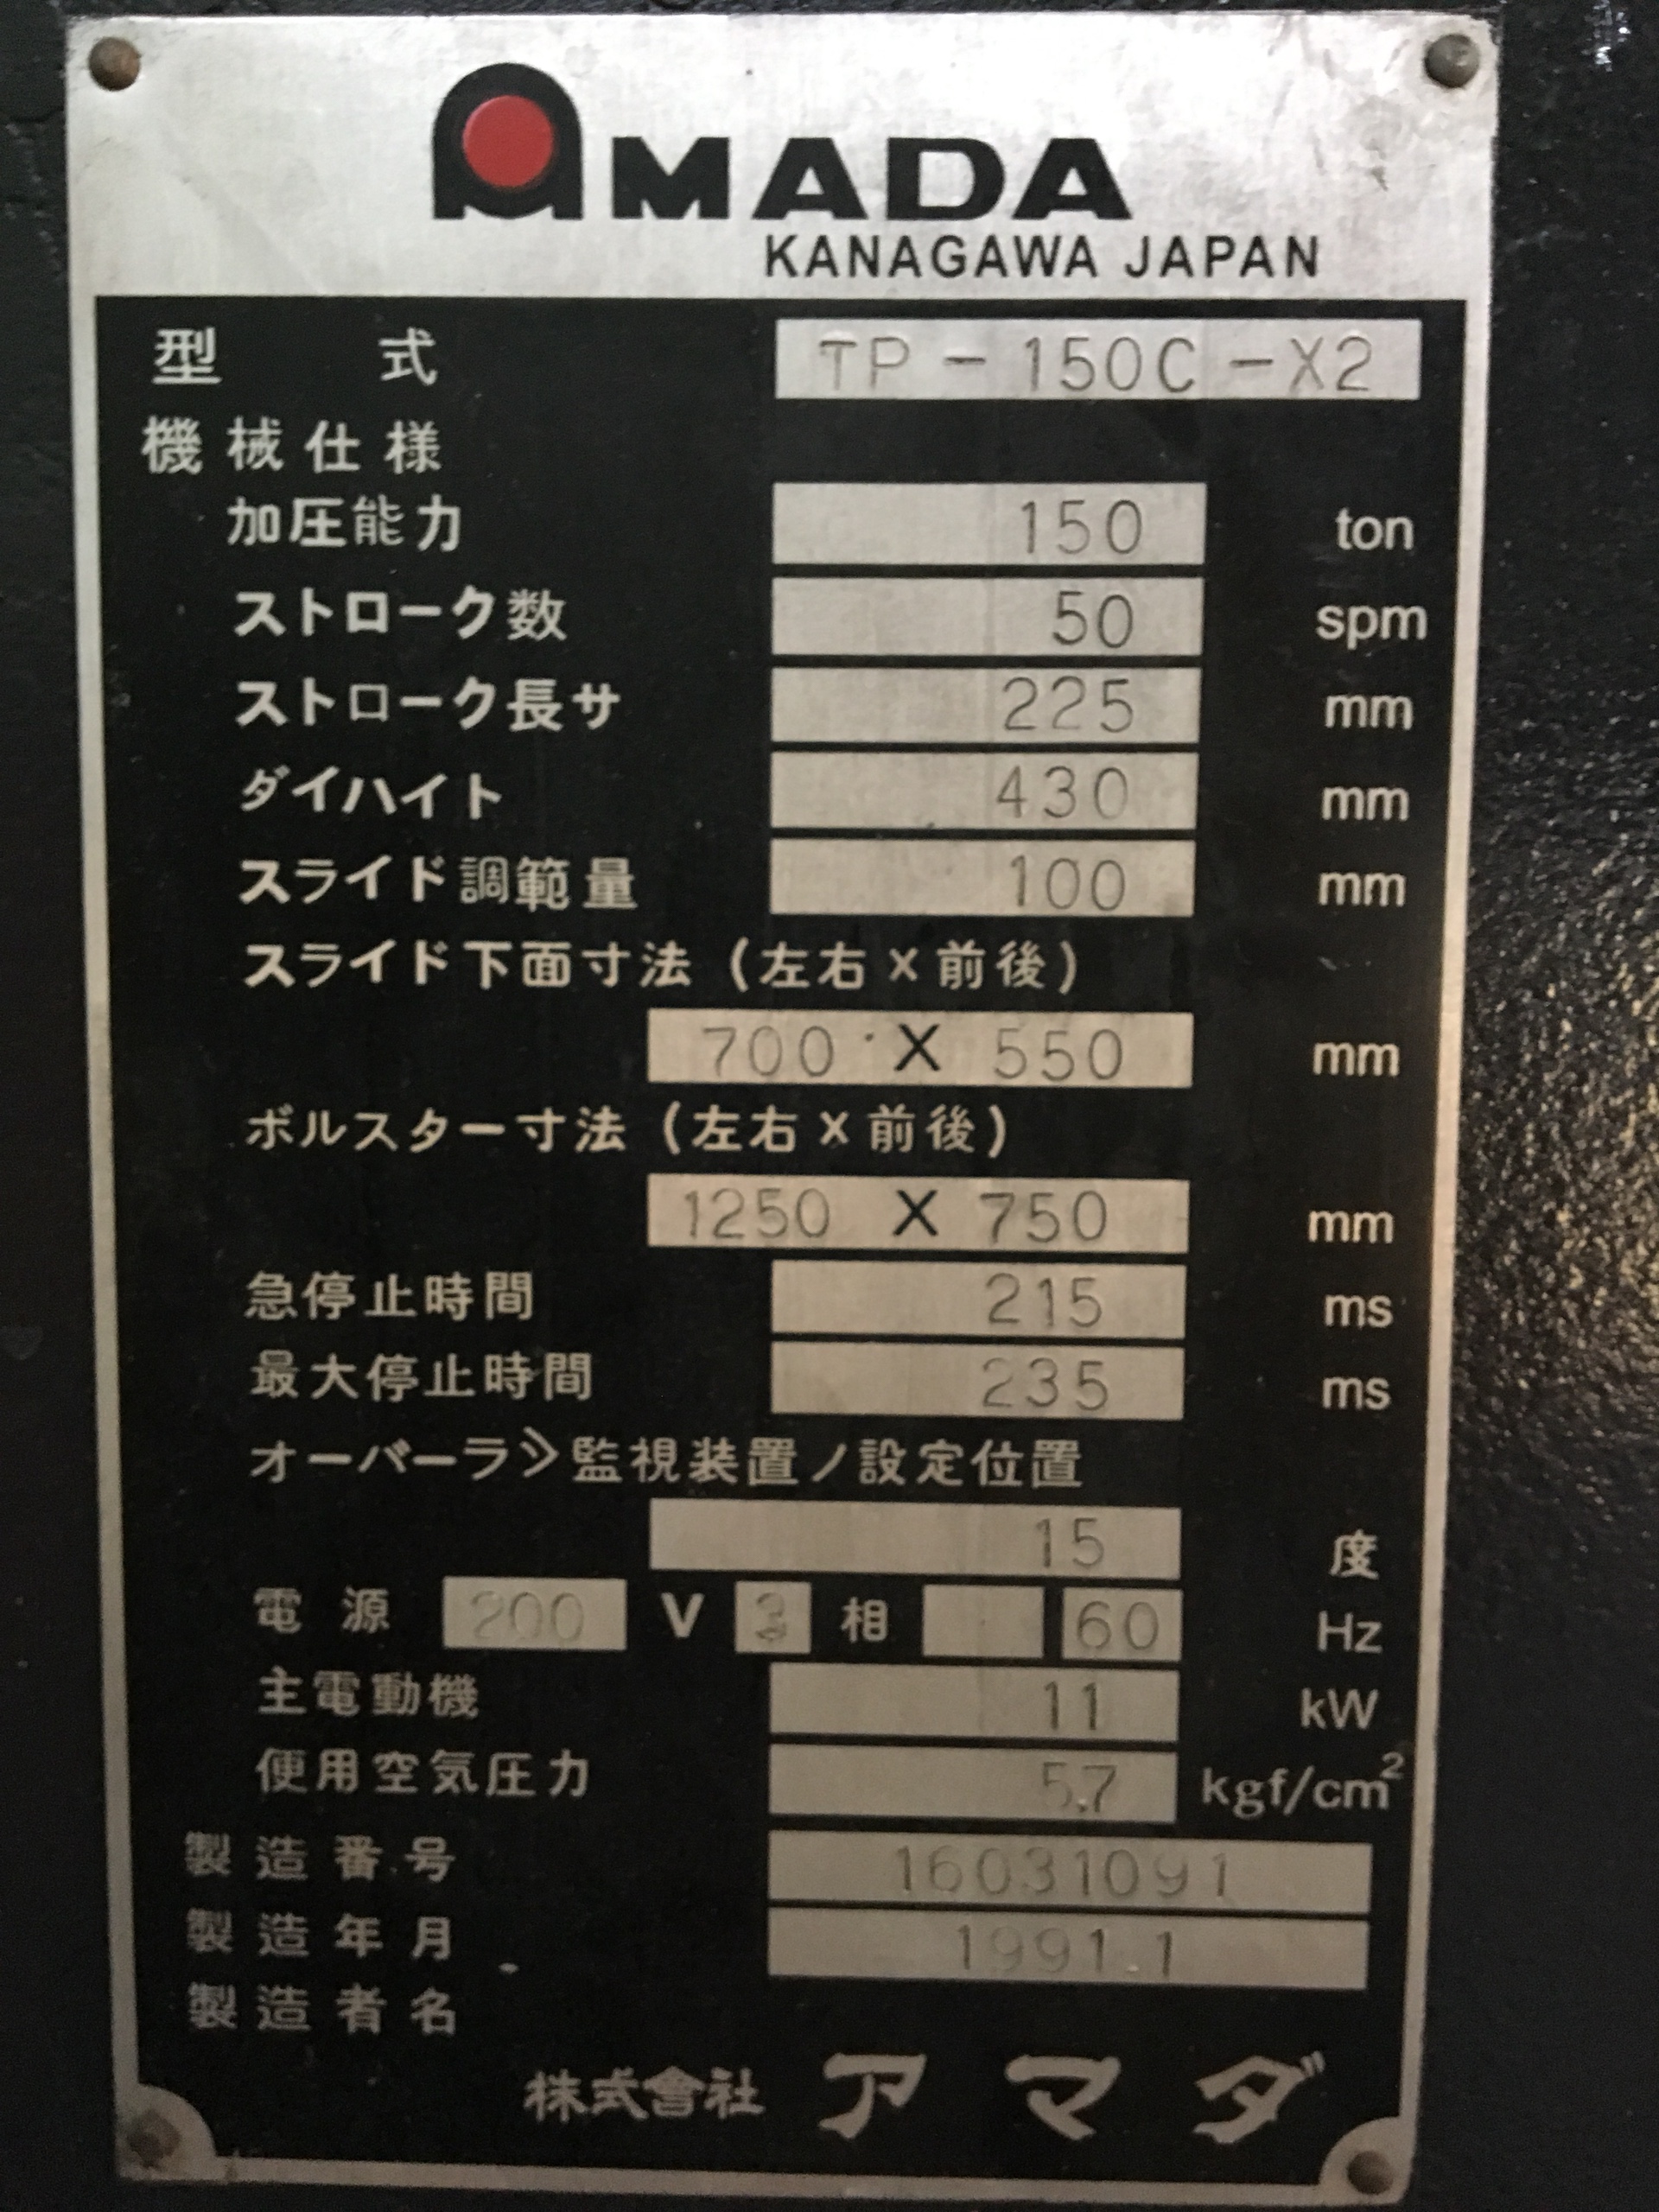 AMADA
KANAGAWA JAPAN
型式 TP-150C-X2
機械仕様
加圧能力 150 ton
ストローク数 50 spm
ストローク長サ 225 mm
ダイハイト 430 mm
スライド調範量 100 mm
スライド下面寸法(左右×前後)
700 × 550 mm
ボルスター寸法(左右×前後)
1250 × 750 mm
急停止時間 215 ms
最大停止時間 235 ms
オーバーラン監視装置ノ設定位置
15 度
電源 200 V 3 相 60 Hz
主電動機 11 kW
使用空気圧力 5.7 kgf/cm²
製造番号 16031091
製造年月 1991.1
製造者名
株式會社 アマダ